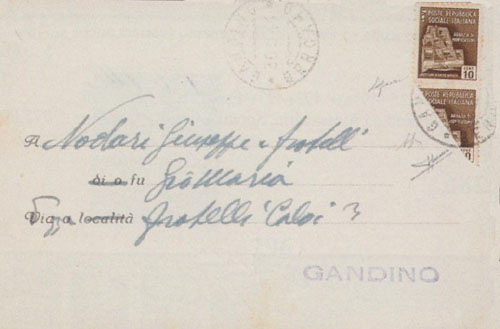 POSTE REPUBBLICA
SOCIALE ITALIANA
CENT
10
POSTE REPUBBLICA
SOCIALE ITALIANA
GAN
A Nodari Giuseppe e fratelli
di o fu Gio Maria
Via o località fratelli Calvi 3
GANDINO